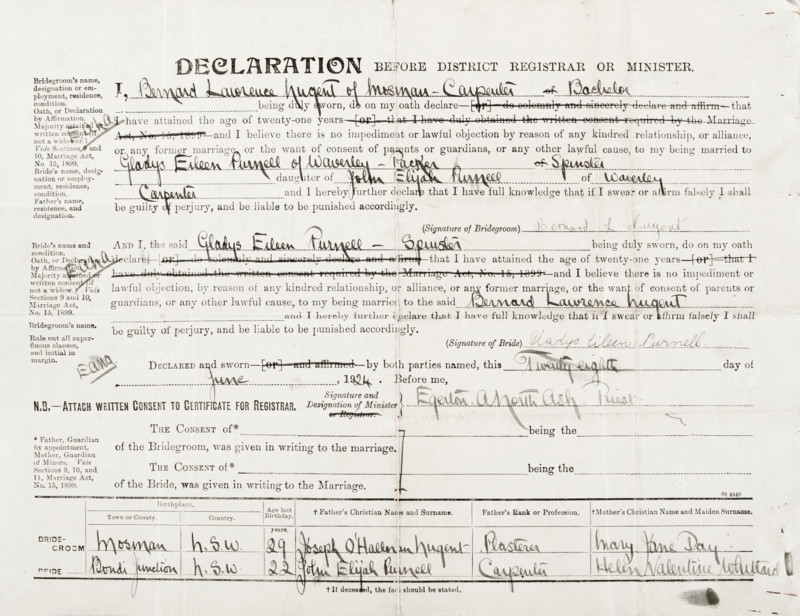 DECLARATION BEFORE DISTRICT REGISTRAR OR MINISTER.
Bridegroom's name, designation or employment, residence, condition.
Oath, or Declaration by Affirmation.
I, Bernard Lawrence Nugent of Mosman - Carpenter of Bachelor
being duly sworn, do on my oath declare—[or]—do solemnly and sincerely declare and affirm—that
I have attained the age of twenty-one years—[or]—that I have duly obtained the written consent required by the Marriage
Act, No. 15, 1899—and I believe there is no impediment or lawful objection by reason of any kindred relationship, or alliance,
or any former marriage, or the want of consent of parents or guardians, or any other lawful cause, to my being married to
Majority attained or written consent (if not a widower). Vide Sections 9 and 10, Marriage Act, No. 15, 1899.
Gladys Eileen Purnell of Waverley - Packer of Spinster
Bride's name, designation or employment, residence, condition.
daughter of John Elijah Purnell of Waverley
Carpenter and I hereby further declare that I have full knowledge that if I swear or affirm falsely I shall
Father's name, residence, and designation.
be guilty of perjury, and be liable to be punished accordingly.
(Signature of Bridegroom) Bernard L Nugent
Bride's name and condition.
Oath, or Declaration by Affirmation.
AND I, the said Gladys Eileen Purnell - Spinster being duly sworn, do on my oath
declare—[or]—do solemnly and sincerely declare and affirm—that I have attained the age of twenty-one years—[or]—that I
have duly obtained the written consent required by the Marriage Act, No. 15, 1899—and I believe there is no impediment or
Majority attained or written consent (if not a widow). Vide Sections 9 and 10, Marriage Act, No. 15, 1899.
lawful objection, by reason of any kindred relationship, or alliance, or any former marriage, or the want of consent of parents or
guardians, or any other lawful cause, to my being married to the said Bernard Lawrence Nugent
Bridegroom's name.
and I hereby further declare that I have full knowledge that if I swear or affirm falsely I shall
be guilty of perjury, and be liable to be punished accordingly.
(Signature of Bride) Gladys Eileen Purnell.
Rule out all superfluous clauses, and initial in margin.
DECLARED and sworn—[or]—and affirmed—by both parties named, this Twenty eighth day of
June, 1924. Before me,
N.B.—ATTACH WRITTEN CONSENT TO CERTIFICATE FOR REGISTRAR.
Signature and Designation of Minister or Registrar.
Egerton A North Ash Priest
* Father, Guardian by appointment, Mother, Guardian of Minors. Vide Sections 9, 10, and 11, Marriage Act, No. 15, 1899.
THE CONSENT OF* being the
of the Bridegroom, was given in writing to the marriage.
THE CONSENT OF* being the
of the Bride, was given in writing to the Marriage.
Birthplace. Age last Birthday. † Father's Christian Name and Surname. Father's Rank or Profession. † Mother's Christian Name and Maiden Surname.
Town or County. Country. years.
BRIDEGROOM Mosman N.S.W. 29 Joseph O'Halloran Nugent Plasterer Mary Jane Day
BRIDE Bondi Junction N.S.W. 22 John Elijah Purnell Carpenter Helen Valentine Whittard
† If deceased, the fact should be stated.